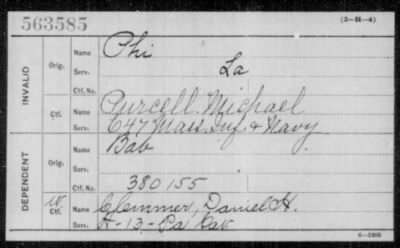 563585
(3-H-4)
INVALID
Orig.
Name
Phi
Serv.
La
Ctf. No.
Ctf.
Purcell, Michael
647 Mass. Inf. & Navy
DEPENDENT
Orig.
Name
Bab
Serv.
Ctf. No.
380155
W.
Ctf.
Clemmer, Daniel H.
H-13-Pa Cav
6-1302